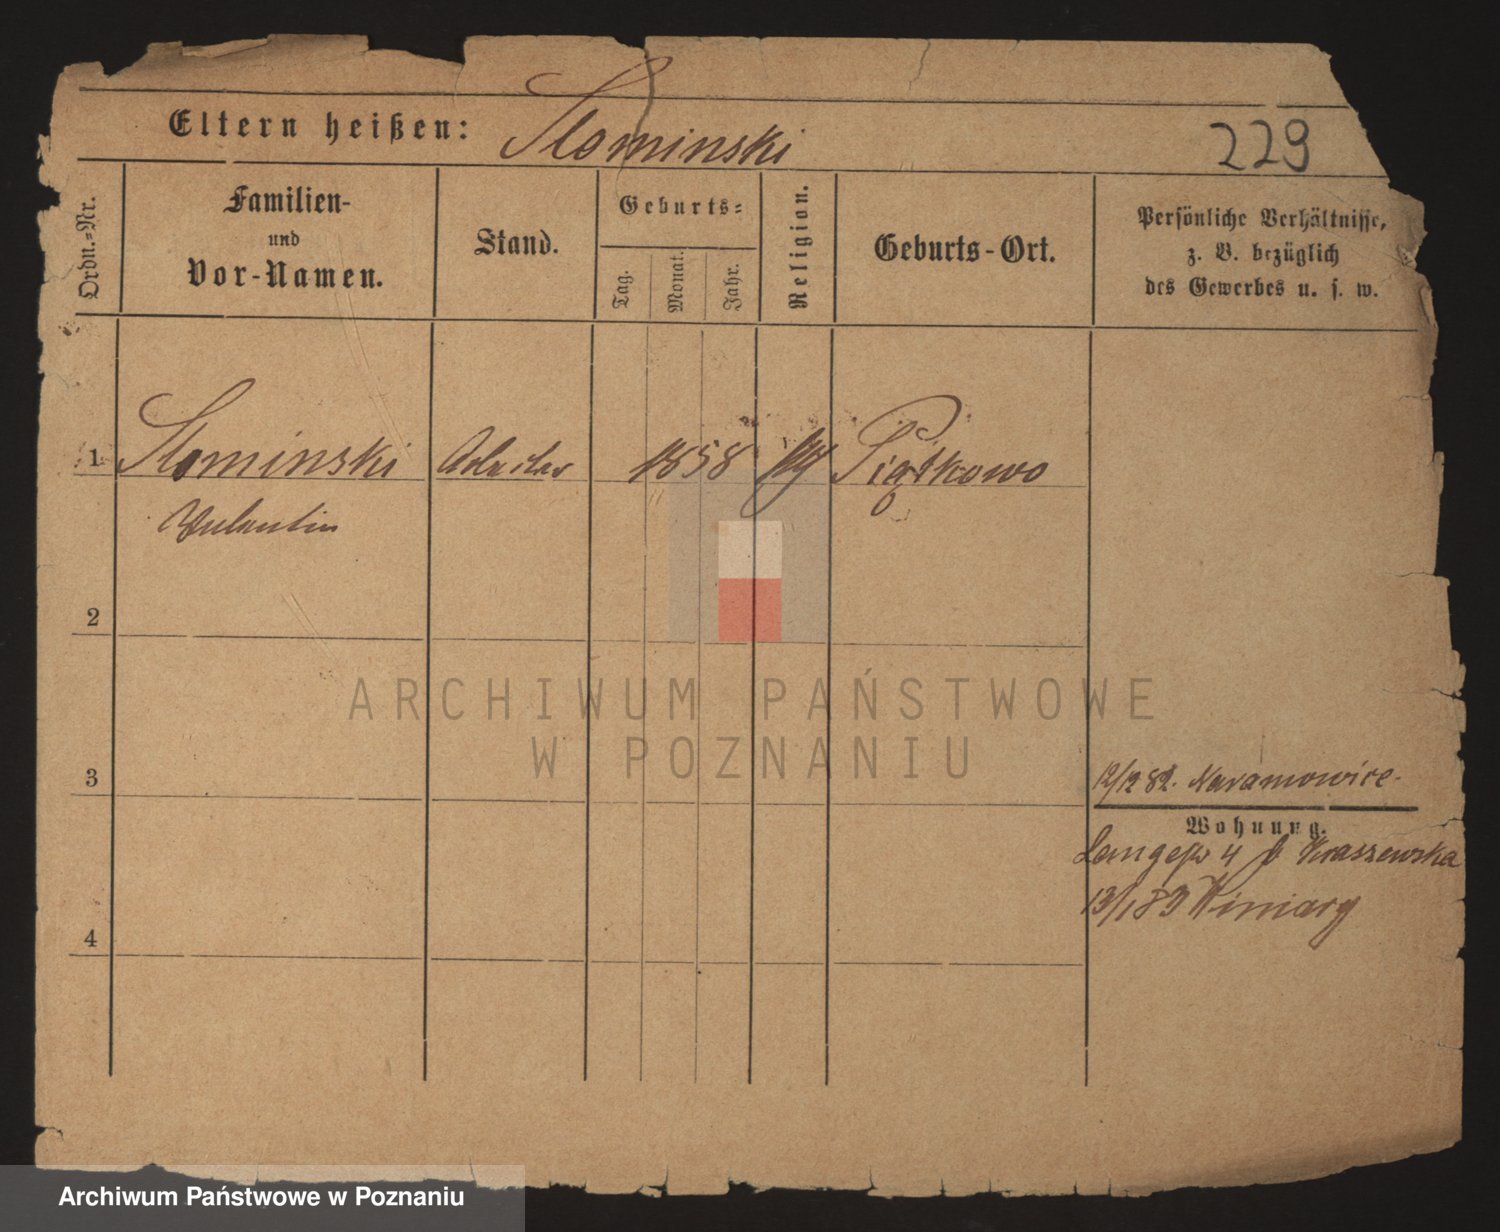 Eltern heißen: Slominski
229
Ordn.-Nr.
Familien-
und
Vor-Namen.
Stand.
Geburts-
Tag.
Monat.
Jahr.
Religion.
Geburts-Ort.
Persönliche Verhältnisse,
z. B. bezüglich
des Gewerbes u. s. w.
1 Slominski 1858 Piątkowo
Valentin
2
ARCHIWUM PAŃSTWOWE
W POZNANIU
3
12/12 82. Naramowice.
Wohnung.
Langestr 4 b Kraszewska
13/1 83 Winiary
4
Archiwum Państwowe w Poznaniu